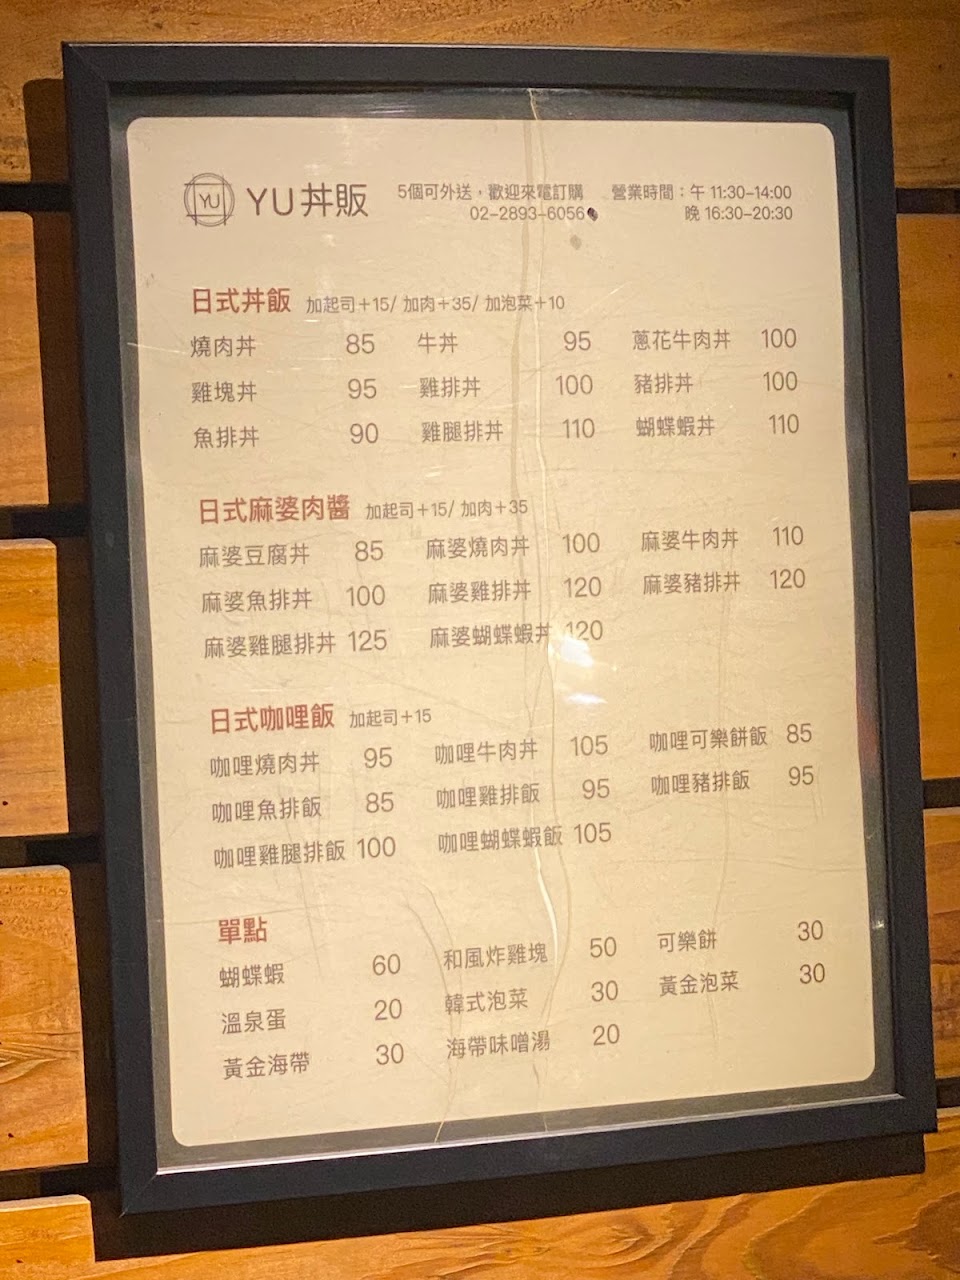 YU YU丼販 5個可外送，歡迎來電訂購 營業時間：午 11:30–14:00
02–2893–6056 晚 16:30–20:30
日式丼飯 加起司+15/ 加肉+35/ 加泡菜+10
燒肉丼 85 牛丼 95 蔥花牛肉丼 100
雞塊丼 95 雞排丼 100 豬排丼 100
魚排丼 90 雞腿排丼 110 蝴蝶蝦丼 110
日式麻婆肉醬 加起司+15/ 加肉+35
麻婆豆腐丼 85 麻婆燒肉丼 100 麻婆牛肉丼 110
麻婆魚排丼 100 麻婆雞排丼 120 麻婆豬排丼 120
麻婆雞腿排丼 125 麻婆蝴蝶蝦丼 120
日式咖哩飯 加起司+15
咖哩燒肉丼 95 咖哩牛肉丼 105 咖哩可樂餅飯 85
咖哩魚排飯 85 咖哩雞排飯 95 咖哩豬排飯 95
咖哩雞腿排飯 100 咖哩蝴蝶蝦飯 105
單點
蝴蝶蝦 60 和風炸雞塊 50 可樂餅 30
溫泉蛋 20 韓式泡菜 30 黃金泡菜 30
黃金海帶 30 海帶味噌湯 20